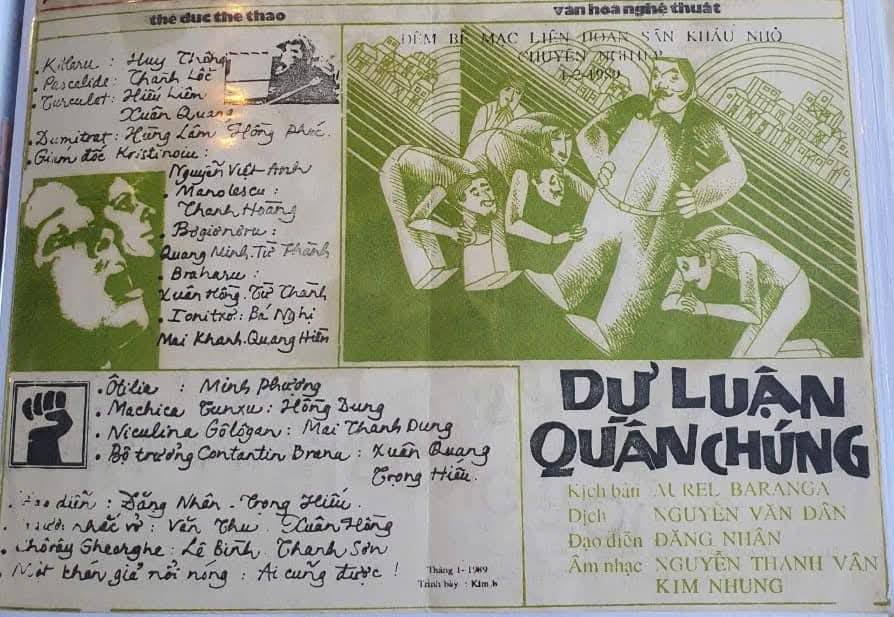 thể dục thể thao
văn hoá nghệ thuật
. Kitaru : Huy Thông
. Pascalide : Thanh Lốc
. Turculet : Hiếu Liêm
Xuân Quang
. Dumitrat : Hùng Lâm Hồng Phúc.
. Giám đốc Kristinoiu :
Nguyễn Việt Anh
. Manolescu :
Thanh Hoàng
. Bogioneru :
Quang Minh. Từ Thành
. Braharu :
Xuân Hồng. Từ Thành
. Ionitxơ : Bá Nghị
Mai Khanh. Quang Hiền
ĐÊM BẾ MẠC LIÊN HOAN SÂN KHẤU NHỎ
CHUYÊN NGHIỆP
1-2-1989
. Ôtilia : Minh Phương
. Machica Tunxu : Hồng Dung
. Niculina Gôlôgan : Mai Thanh Dung
. Bộ trưởng Contantin Brana : Xuân Quang
Trọng Hiếu.
Đạo diễn : Đặng Nhân . Trọng Hiếu.
Người nhắc vở : Văn Thu . Xuân Hồng
Chôrây Gheorghe : Lê Bình . Thanh Sơn
. Một khán giả nổi nóng : Ai cũng được !
Tháng 1 - 1989
Trình bày : Kim.b
DƯ LUẬN
QUẦN CHÚNG
Kịch bản AUREL BARANGA
Dịch NGUYỄN VĂN DÂN
Đạo diễn ĐĂNG NHÂN
Âm nhạc NGUYỄN THANH VÂN
KIM NHUNG